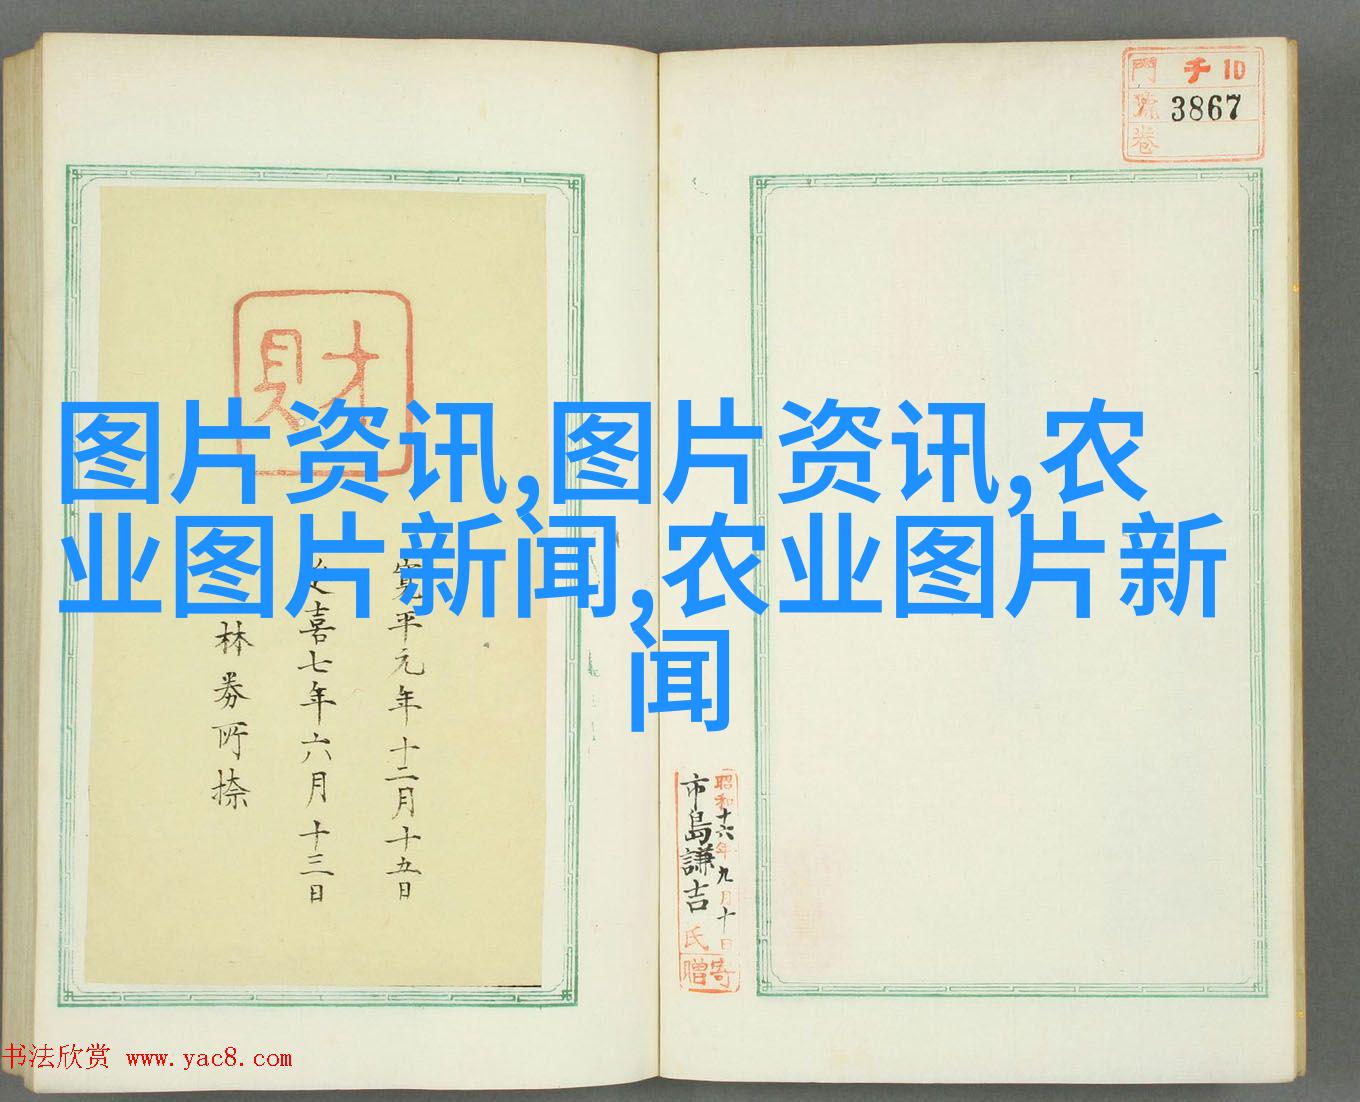 門 千10
號 3867
卷
財
图片资讯,图片资讯,农
业图片新闻,农业图片新
闻
寛平元年十二月十五日
喜七年六月十三日
林券所捺
昭和十六年九月十日寄
市島謙吉氏贈
书法欣赏 www.yac8.com